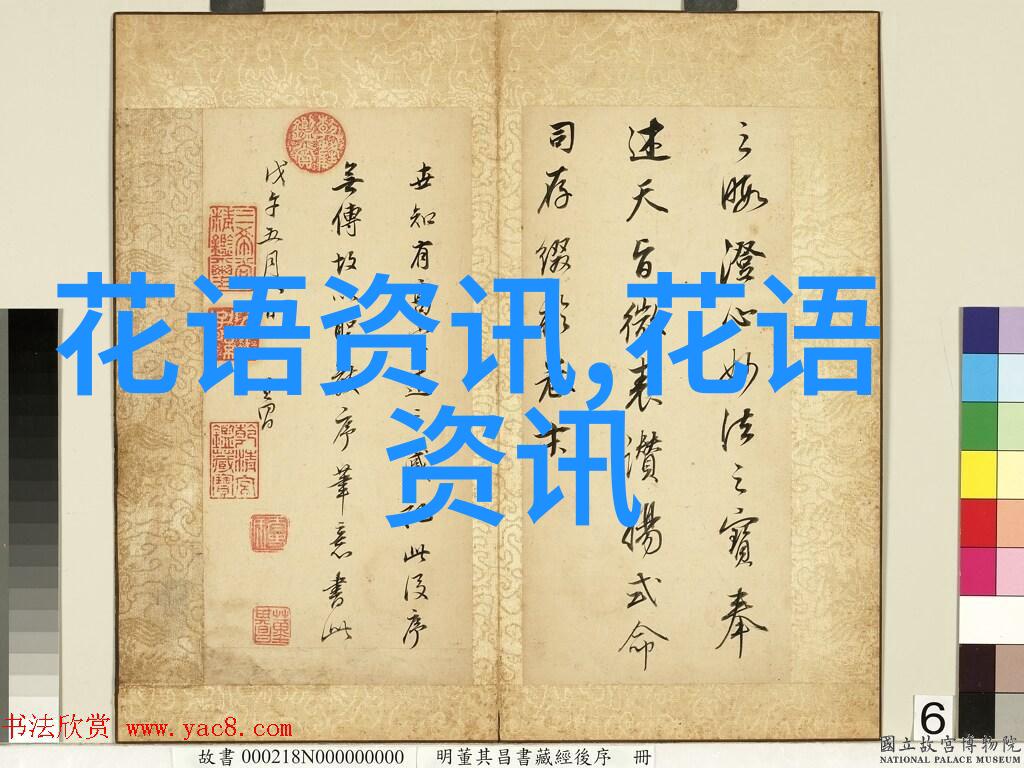 花语资讯,花语
资讯
之晦澄心妙法之寶奉
述天旨微表讚揚式命
司存綴於卷末
世知有 此後序
無傳故以 序筆意書此
戊午五月
三希堂精鑑璽
书法欣赏 www.yac8.com
故書 000218N000000000
明董其昌書藏經後序 冊
6
國立故宮博物院
NATIONAL PALACE MUSEUM